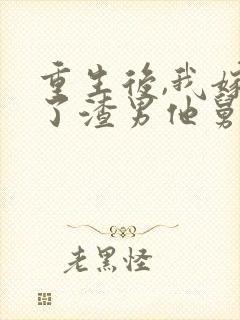 重生後,我嫁
了渣男他舅
老黑怪